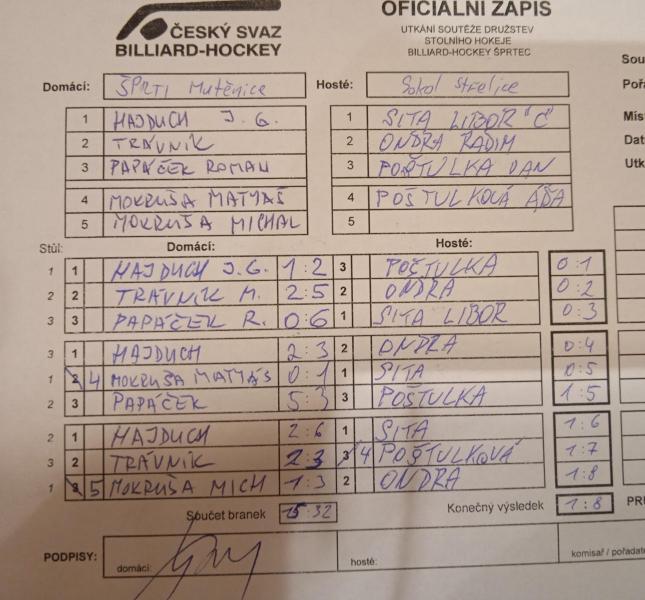 ČESKÝ SVAZ
BILLIARD-HOCKEY
OFICIÁLNÍ ZÁPIS
UTKÁNÍ SOUTĚŽE DRUŽSTEV
STOLNÍHO HOKEJE
BILLIARD-HOCKEY ŠPRTEC
Domácí: ŠPRTI Mutěnice Hosté: Sokol Střelice
1 HAJDUCH J.G. 1 SITA LIBOR "C"
2 TRÁVNÍK 2 ONDRA RADIM
3 PAPÁČEK ROMAN 3 POŠTULKA DAN
4 MOKRUŠA MATYÁŠ 4 POŠTULKOVÁ ÁĎA
5 MOKRUŠA MICHAL 5
Stůl: Domácí: Hosté:
1 1 HAJDUCH J.G. 1:2 3 POŠTULKA 0:1
2 2 TRÁVNÍK M. 2:5 2 ONDRA 0:2
3 3 PAPÁČEK R. 0:6 1 SITA LIBOR 0:3
3 1 HAJDUCH 2:3 2 ONDRA 0:4
1 2 4 MOKRUŠA MATYÁŠ 0:1 1 SITA 0:5
2 3 PAPÁČEK 5:3 3 POŠTULKA 1:5
2 1 HAJDUCH 2:6 1 SITA 1:6
3 2 TRÁVNÍK 2:3 3 4 POŠTULKOVÁ 1:7
1 3 5 MOKRUŠA MICH 1:3 2 ONDRA 1:8
Součet branek 15:32 Konečný výsledek 1:8
PODPISY: domácí: hosté: komisař / pořadate
Sou
Poř
Mís
Dat
Utk
PŘI